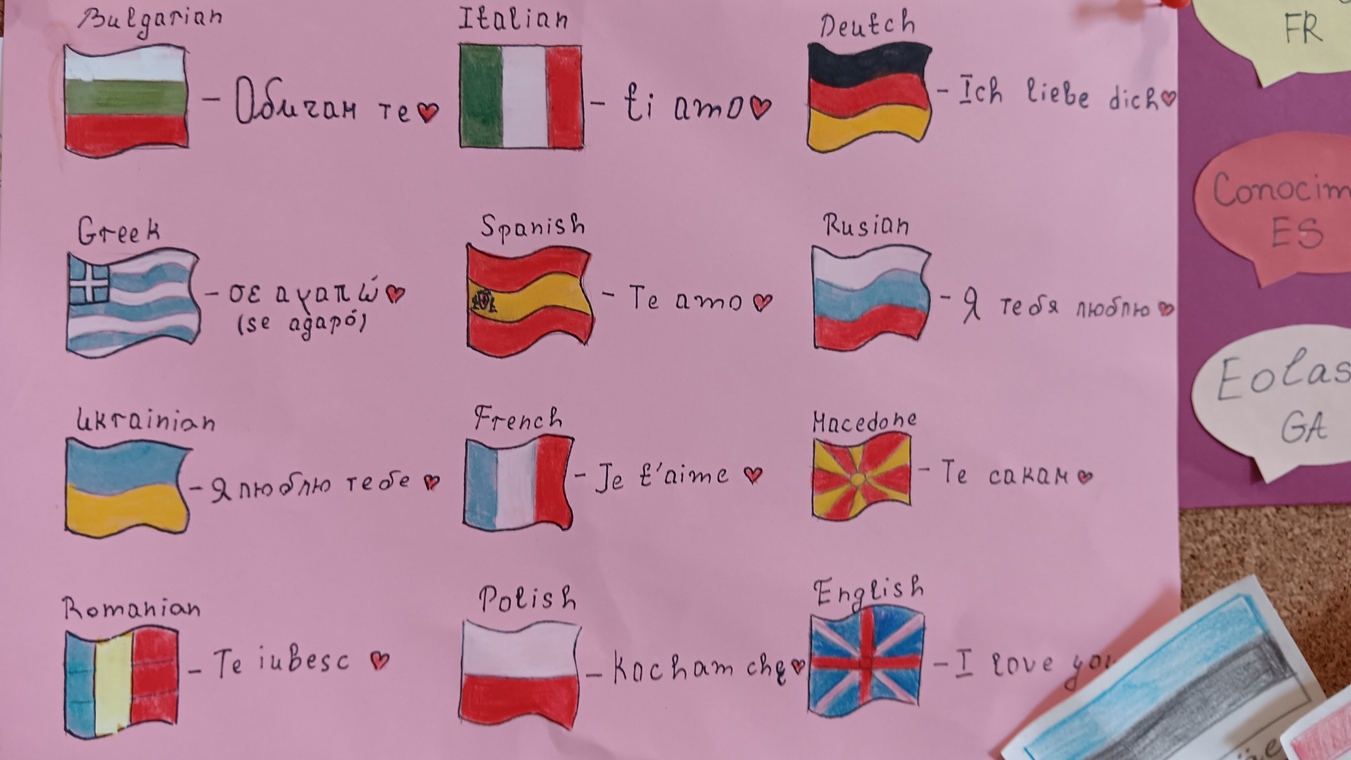 Bulgarian
Обичам те
Italian
ti amo
Deutch
Ich liebe dich
Greek
σε αγαπώ
(se agapó)
Spanish
Te amo
Rusian
Я тебя люблю
Ukrainian
Я люблю тебе
French
Je t'aime
Macedone
Те сакам
Romanian
Te iubesc
Polish
kocham chę
English
I love you
FR
Conocim
ES
Eolas
GA